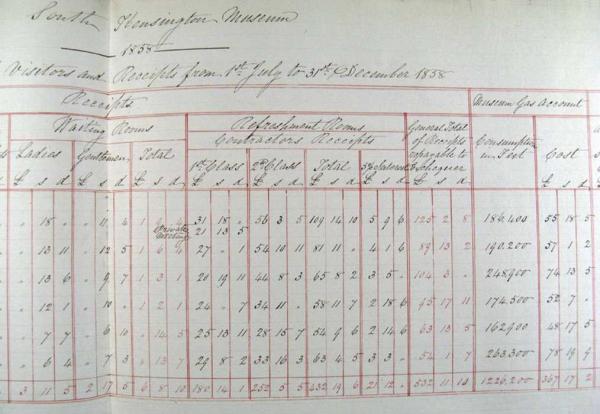 South Kensington Museum
1858
Visitors and Receipts from 1st July to 31st December 1858
Receipts
Museum Gas Account
Waiting Rooms
Refreshment Rooms
Contractors Receipts
General Total of Receipts payable to Exchequer
Consumption in Feet
Cost
Ladies Gentlemen Total 1st Class 2nd Class Total
£ s d £ s d £ s d £ s d £ s d £ s d £ s d £ s d £ s d
18 . . 11 4 1 9 4 31 18 . 56 3 5 109 14 10 5 9 6 125 2 8 186,400 55 18 5
Private meeting 21 13 5
. 13 11 . 12 5 1 6 4 27 . 1 54 10 11 81 11 . 4 1 6 89 13 2 190,200 57 1 2
. 13 6 . 9 7 1 3 1 20 19 11 44 8 3 65 8 2 3 5 . 104 3 . 248900 74 13 5
. 12 1 . 10 . 1 2 1 24 . 7 34 11 . 58 11 7 2 18 6 95 17 11 174,500 52 7 .
. 7 7 . 6 10 . 14 5 25 13 11 28 15 7 54 9 6 2 14 6 63 13 5 162900 48 17 5
. 6 4 . 7 3 . 13 7 29 8 2 33 16 3 63 4 5 3 3 . 54 1 7 263,300 78 19 9
3 11 5 2 17 5 6 8 10 180 14 1 252 5 5 432 19 6 21 12 . 532 11 10 1226,200 367 17 2